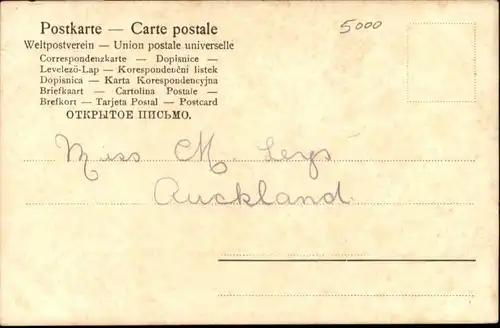 Postkarte — Carte postale
5000
Weltpostverein — Union postale universelle
Correspondenzkarte — Dopisnice —
Levelező-Lap — Korespondenční listek
Dopisnica — Karta Korespondencyjna
Briefkaart — Cartolina Postale —
Brefkort — Tarjeta Postal — Postcard
ОТКРЫТОЕ ПИСЬМО.
Miss M. Leys
Auckland